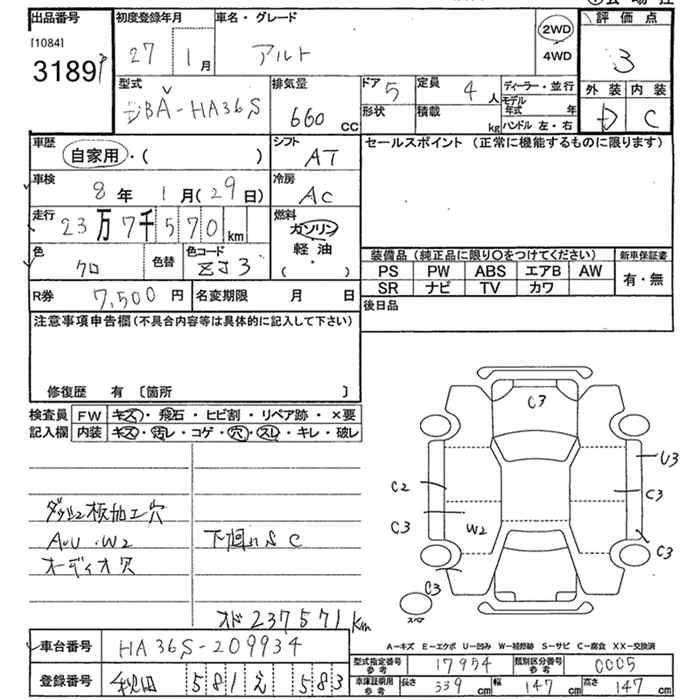 出品番号 初度登録年月 車名・グレード 評価点
[1084] 27 1月 アルト 2WD 4WD 3
3189
型式 排気量 ドア 定員 ディーラー・並行 外装 内装
DBA-HA36S 660 cc 5 4人 モデル年式 年 D C
形状 積載 kg ハンドル 左・右
車歴 シフト セールスポイント (正常に機能するものに限ります)
自家用・( ) AT
車検 冷房
8年 1月(29日) AC
走行 燃料
23万7千570km ガソリン
色 色替 色コード 軽油
クロ ZJ3 ( ・ )
装備品 (純正品に限り○をつけてください) 新車保証書
PS PW ABS エアB AW 有・無
SR ナビ TV カワ
R券 7,500円 名変期限 月 日 後日品
注意事項申告欄 (不具合内容等は具体的に記入して下さい)
修復歴 有 〔箇所 〕
検査員 FW キズ・飛石・ヒビ割・リペア跡・×要
記入欄 内装 キズ・汚レ・コゲ・穴・スレ・キレ・破レ
C3
U3
C2 C3
C3 W2
C3
C3
スペア
板加工穴
A・U・W2 下回りS C
オーディオ穴
オド 237571km
A-キズ E-エクボ U-凹み W-補修跡 S-サビ C-腐食 XX-交換済
車台番号 HA36S-209934
型式指定番号 参考 17954 類別区分番号 参考 0005
登録番号 秋田 581 え 583
車庫証明用 参考 長さ 339cm 幅 147cm 高さ 147cm